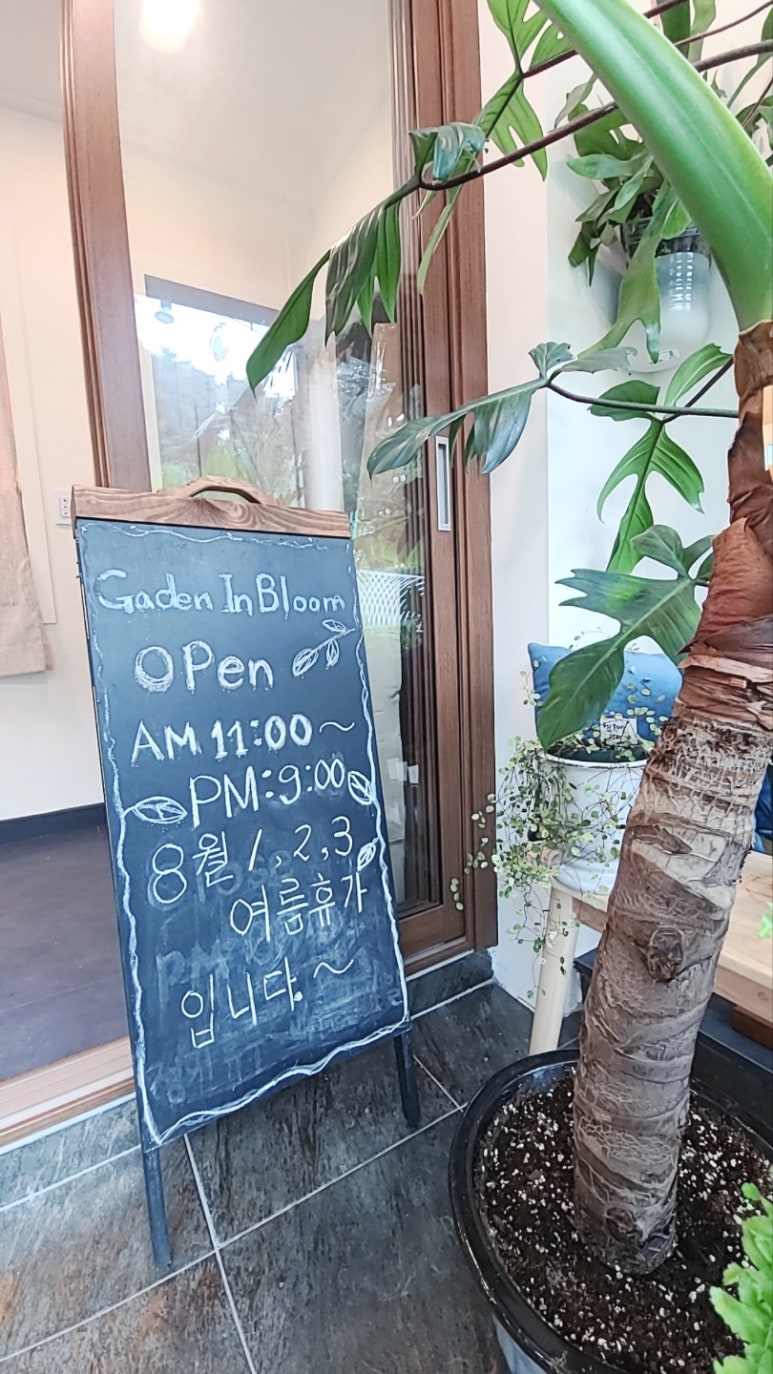 Gaden In Bloom
OPen
AM 11:00 ~
PM:9:00
8월 1, 2, 3
여름휴가
입니다. ~